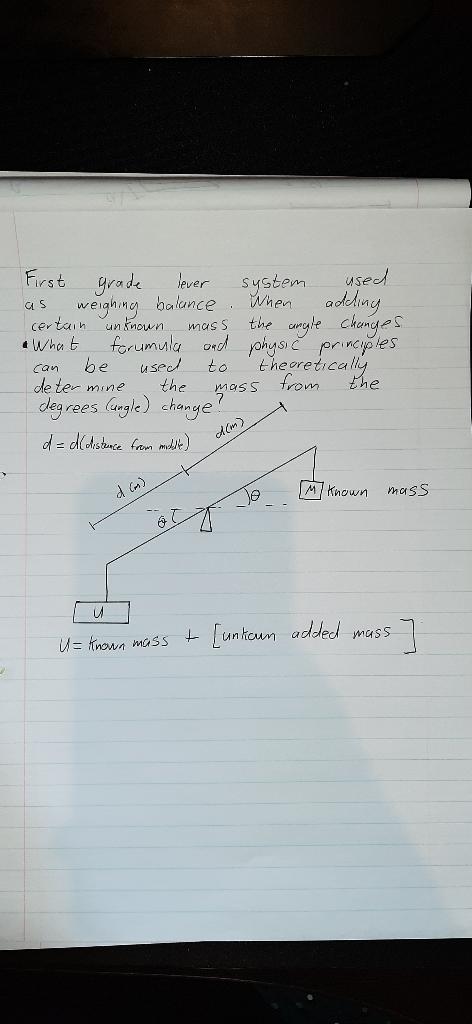 First grade lever system used
as weighing balance. When adding
certain unknown mass the angle changes
• What forumula and physic principles
can be used to theoretically
determine the mass from the
degrees (angle) change?
d = d(distance from middle)
d(m)
d(m)
θ
θ
M known mass
U
U = known mass + [unkown added mass]